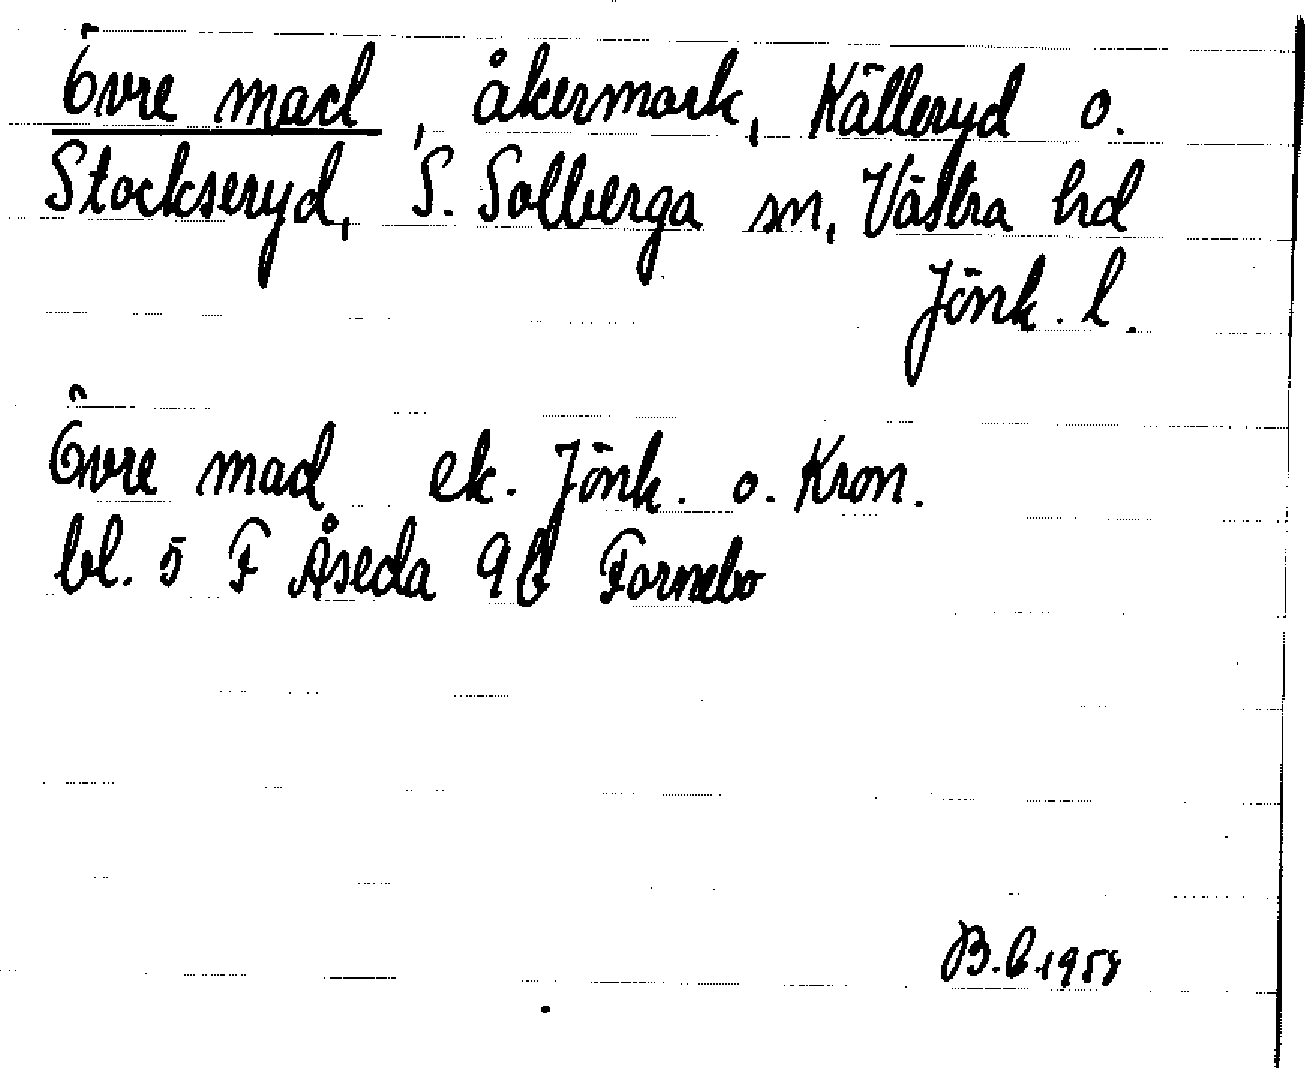 Övre mad, åkermark, Källeryd o.
Stockseryd, S. Solberga sn, Västra hd
Jönk. l.
Övre mad ek. Jönk. o. Kron.
bl. 5 F Åseda 9b Fornebo
B.C.1958